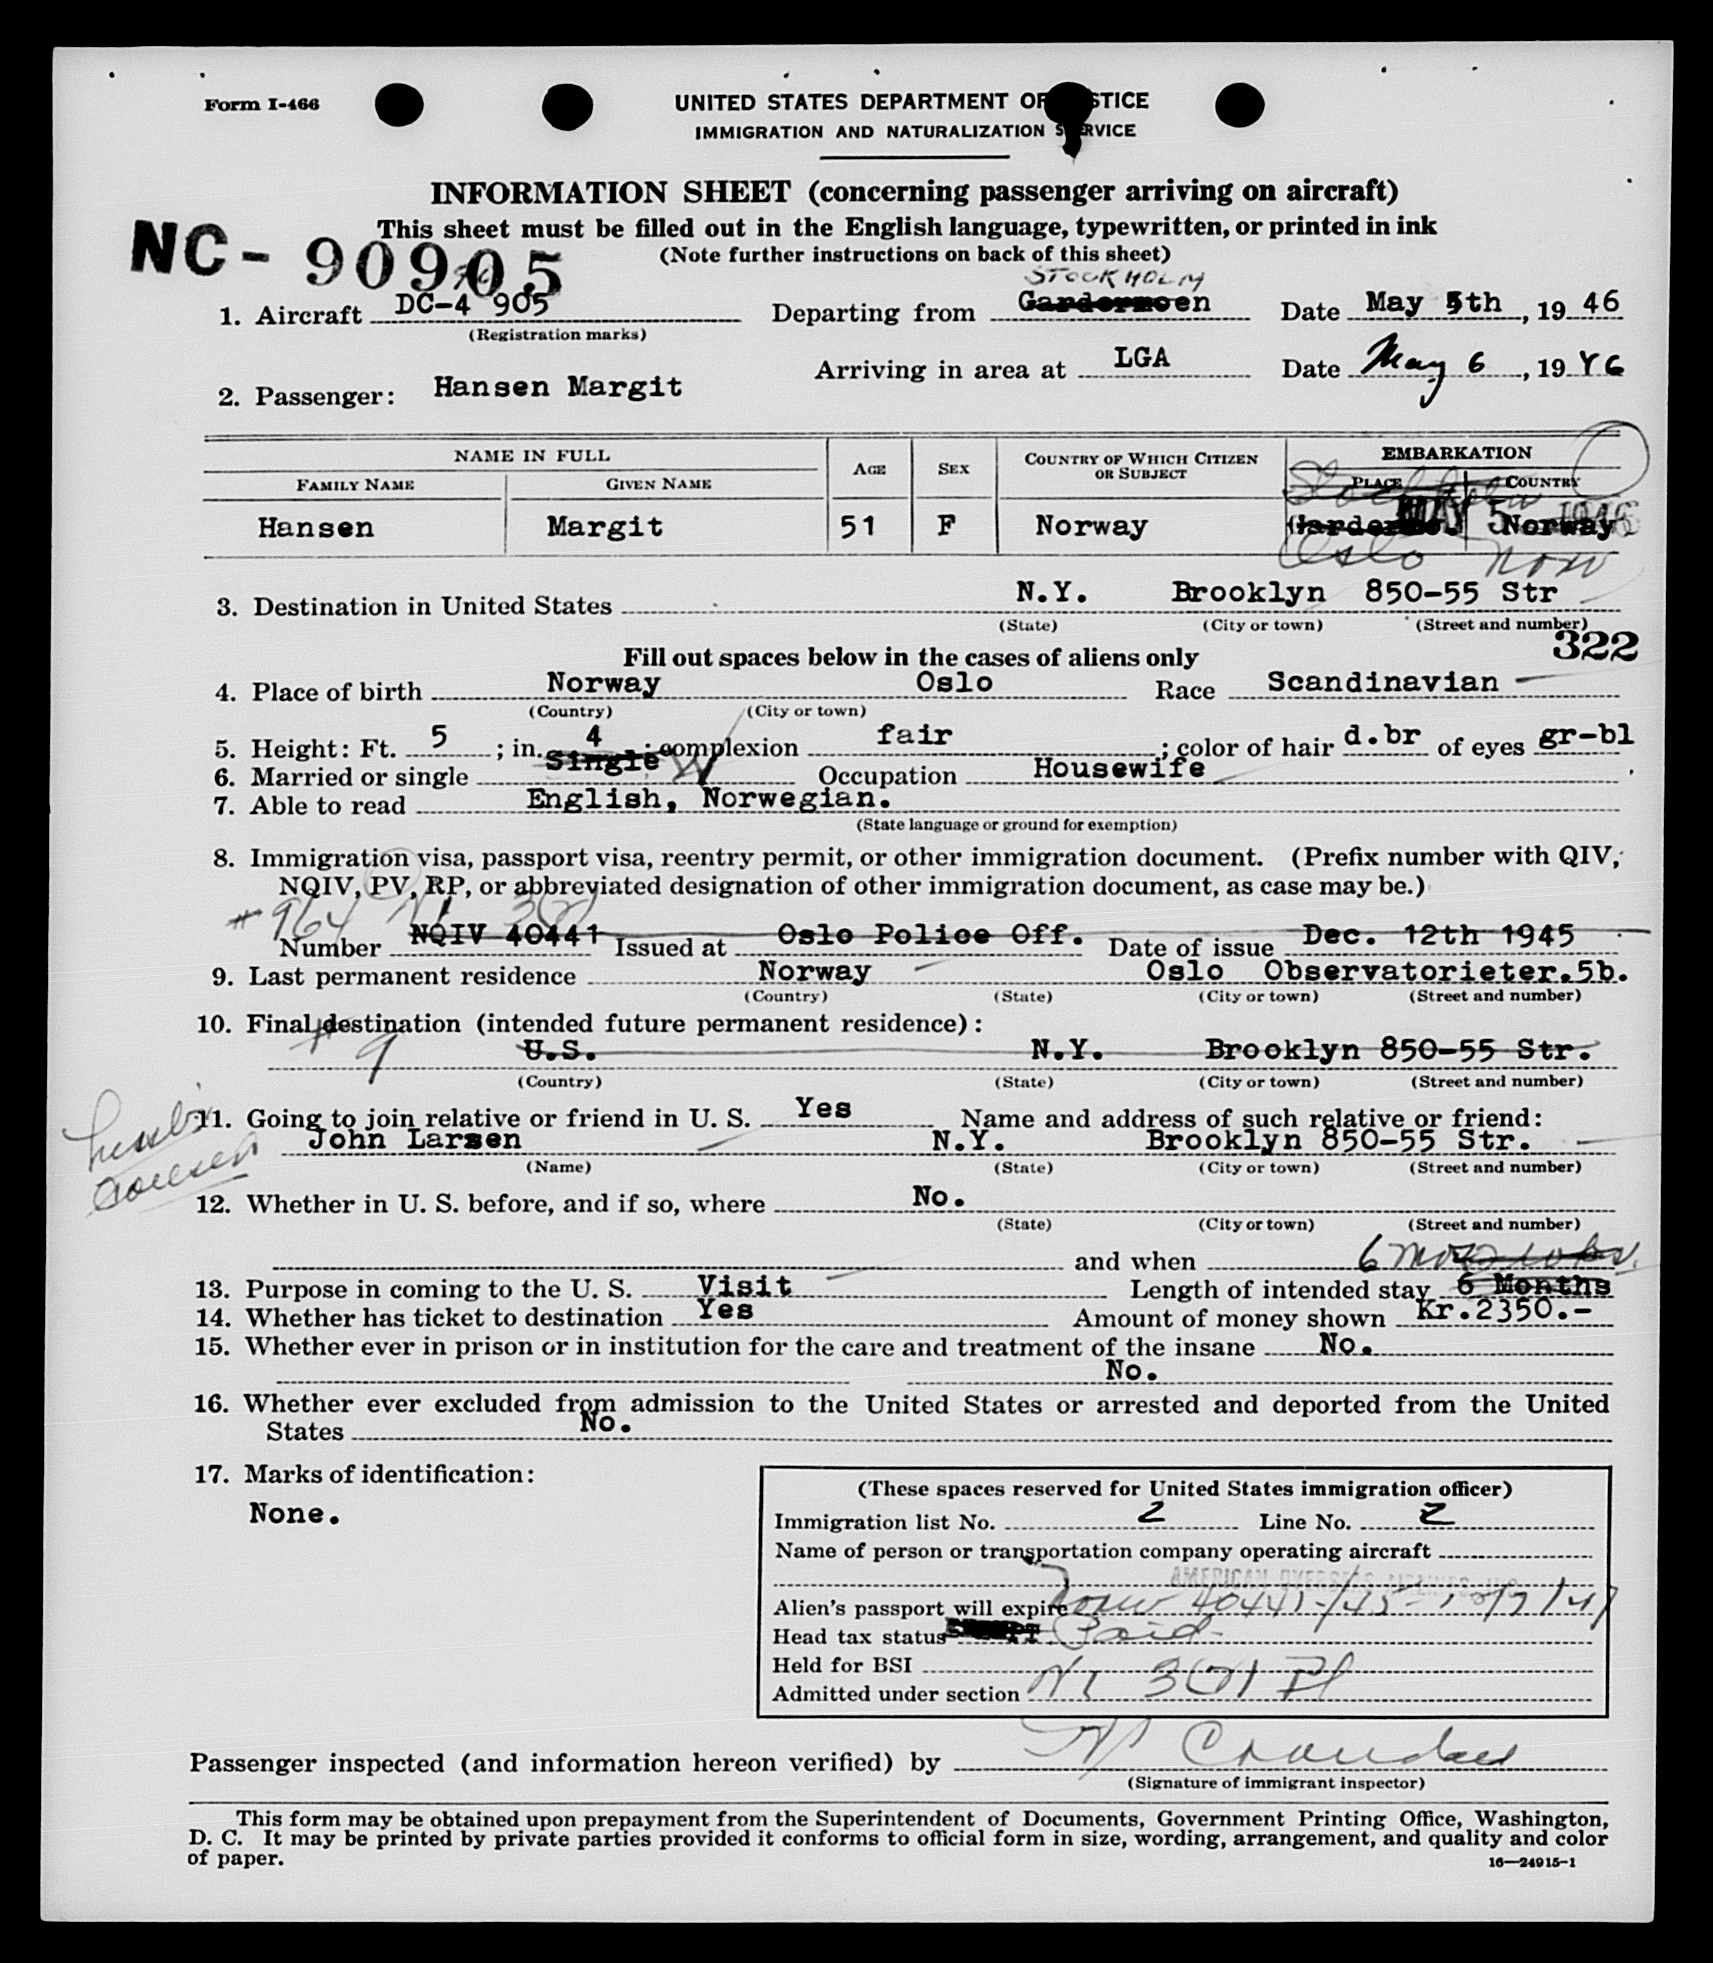 Form I-466
UNITED STATES DEPARTMENT OF JUSTICE
IMMIGRATION AND NATURALIZATION SERVICE
INFORMATION SHEET (concerning passenger arriving on aircraft)
This sheet must be filled out in the English language, typewritten, or printed in ink
NC-90905
(Note further instructions on back of this sheet)
STOCKHOLM
1. Aircraft DC-4 905 Departing from Gardermoen Date May 5th, 1946
(Registration marks)
Arriving in area at LGA Date May 6, 1946
2. Passenger: Hansen Margit
NAME IN FULL AGE SEX COUNTRY OF WHICH CITIZEN OR SUBJECT EMBARKATION
FAMILY NAME GIVEN NAME PLACE COUNTRY
Stockholm
MAY 5 1946
Hansen Margit 51 F Norway Norway
Oslo Nor
3. Destination in United States N.Y. Brooklyn 850-55 Str
(State) (City or town) (Street and number)
322
Fill out spaces below in the cases of aliens only
4. Place of birth Norway Oslo Race Scandinavian
(Country) (City or town)
5. Height: Ft. 5; in. 4; complexion fair; color of hair d.br of eyes gr-bl
6. Married or single Single W Occupation Housewife
7. Able to read English, Norwegian.
(State language or ground for exemption)
8. Immigration visa, passport visa, reentry permit, or other immigration document. (Prefix number with QIV,
NQIV, PV, RP, or abbreviated designation of other immigration document, as case may be.)
#964 3(2)
Number NQIV 40441 Issued at Oslo Police Off. Date of issue Dec. 12th 1945
9. Last permanent residence Norway Oslo Observatorieter.5b.
(Country) (State) (City or town) (Street and number)
10. Final destination (intended future permanent residence):
#9 U.S. N.Y. Brooklyn 850-55 Str.
(Country) (State) (City or town) (Street and number)
11. Going to join relative or friend in U. S. Yes Name and address of such relative or friend:
John Larsen N.Y. Brooklyn 850-55 Str.
(Name) (State) (City or town) (Street and number)
12. Whether in U. S. before, and if so, where No.
(State) (City or town) (Street and number)
and when
6 mos
13. Purpose in coming to the U. S. Visit Length of intended stay 6 Months
14. Whether has ticket to destination Yes Amount of money shown Kr.2350.-
15. Whether ever in prison or in institution for the care and treatment of the insane No.
No.
16. Whether ever excluded from admission to the United States or arrested and deported from the United
States No.
17. Marks of identification:
None.
(These spaces reserved for United States immigration officer)
Immigration list No. 2 Line No. 2
Name of person or transportation company operating aircraft
AMERICAN OVERSEAS AIRLINES, INC.
Alien's passport will expire
Head tax status Paid
Held for BSI
Admitted under section 3(2)
Passenger inspected (and information hereon verified) by
(Signature of immigrant inspector)
This form may be obtained upon prepayment from the Superintendent of Documents, Government Printing Office, Washington,
D. C. It may be printed by private parties provided it conforms to official form in size, wording, arrangement, and quality and color
of paper.
16—24915-1